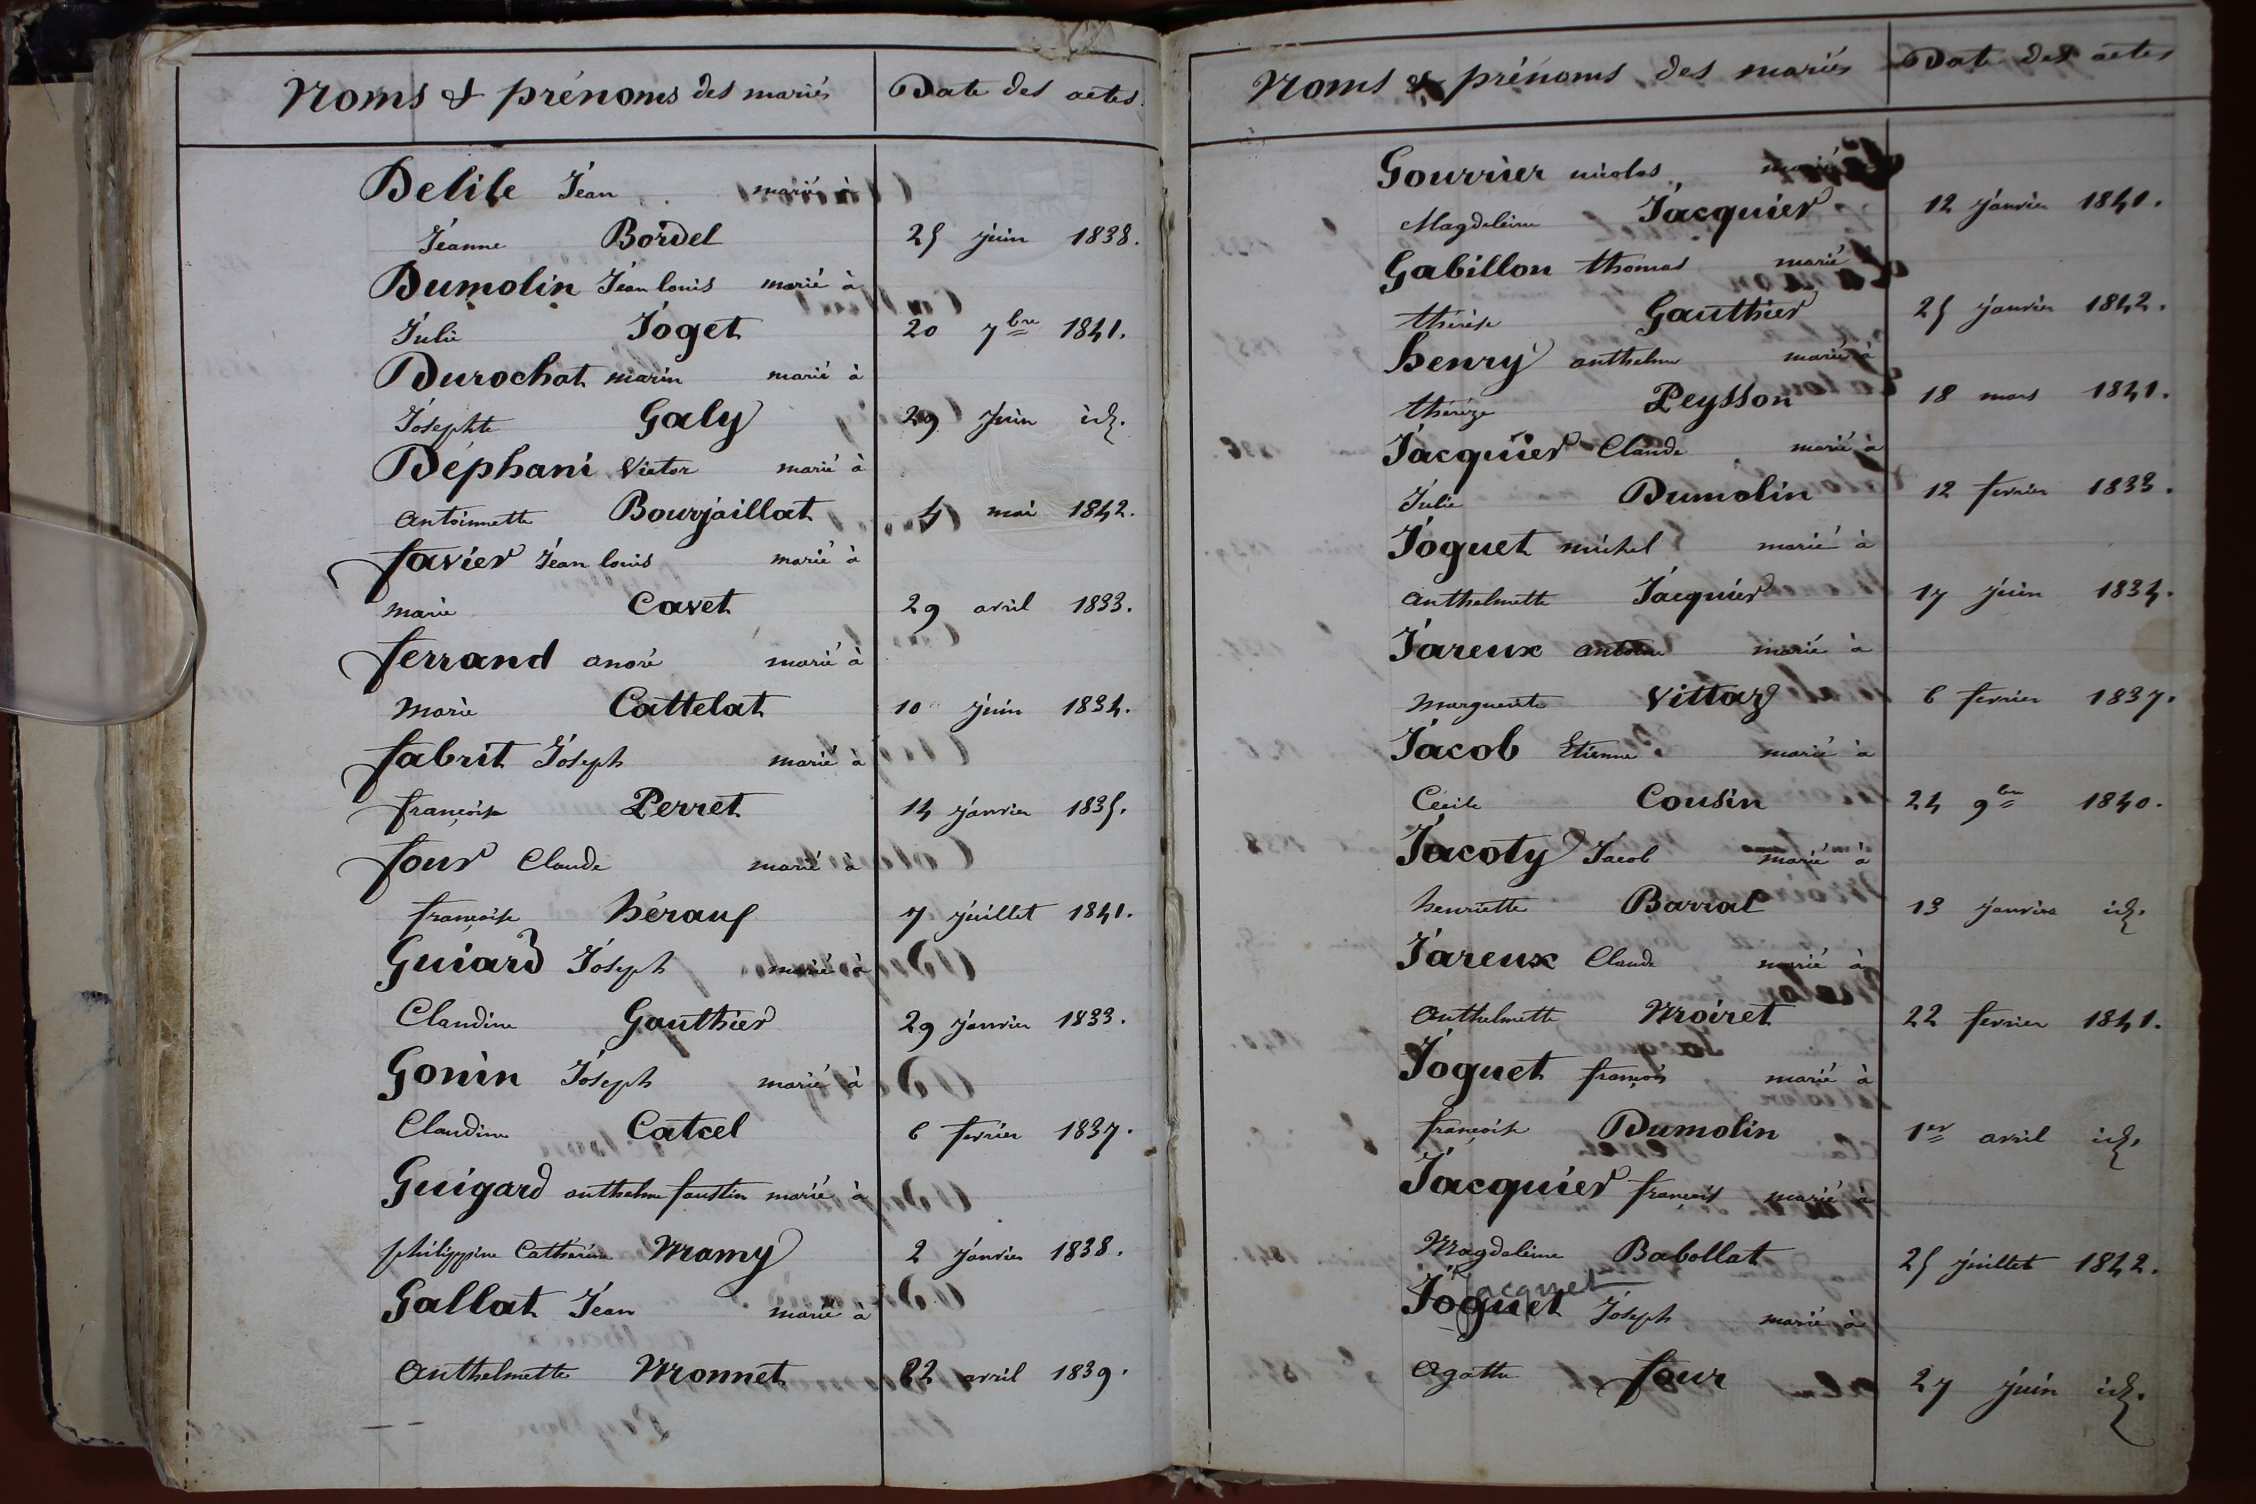 Noms & prénoms des mariés Date des actes.
Delile Jean marié à
Jeanne Bordel 25 juin 1838.
Dumolin Jean louis marié à
Julie Joget 20 7bre 1841.
Durochat marin marié à
Josephte Galy 29 Juin id.
Déphani Victor marié à
antoinnette Bourjaillat 4 mai 1842.
favier Jean louis marié à
marie Cavet 29 avril 1833.
ferrand andré marié à
Marie Cattelat 10 juin 1834.
fabrit Joseph marié à
françoise Perret 14 janvier 1835.
four Claude marié à
françoise hérauf 7 juillet 1841.
Guiard Joseph marié à
Claudine Gauthier 29 janvier 1833.
Gonin Joseph marié à
Claudine Catcel 6 fevrier 1837.
Guigard anthelme faustin marié à
philippine Catherine Mamy 2 janvier 1838.
Gallat Jean marié à
Anthelmette Monnet 22 avril 1839.
Noms & prénoms des mariés Date des actes
Gourrier nicolas marié
Magdeleine Jacquier 12 janvier 1841.
Gabillon thomas marié
thérèse Gauthier 25 janvier 1842.
henry anthelme marié à
thérèze Peysson 18 mars 1841.
Jacquier Claude marié à
Julie Dumolin 12 fevrier 1833.
Joguet michel marié à
anthelmette Jacquier 17 juin 1834.
Jareux antoine marié à
Marguerite Vittoz 6 fevrier 1837.
Jacob Etienne marié à
Cécile Cousin 24 9bre 1840.
Jacoty Jacob marié à
henriette Barral 13 janvier id.
Jareux Claude marié à
anthelmette Moiret 22 fevrier 1841.
Joguet françois marié à
françoise Dumolin 1er avril id.
Jacquier françois marié à
Magdeleine Babollat 25 juillet 1842.
Jacquet
Joguet Joseph marié à
Agathe four 27 juin id.